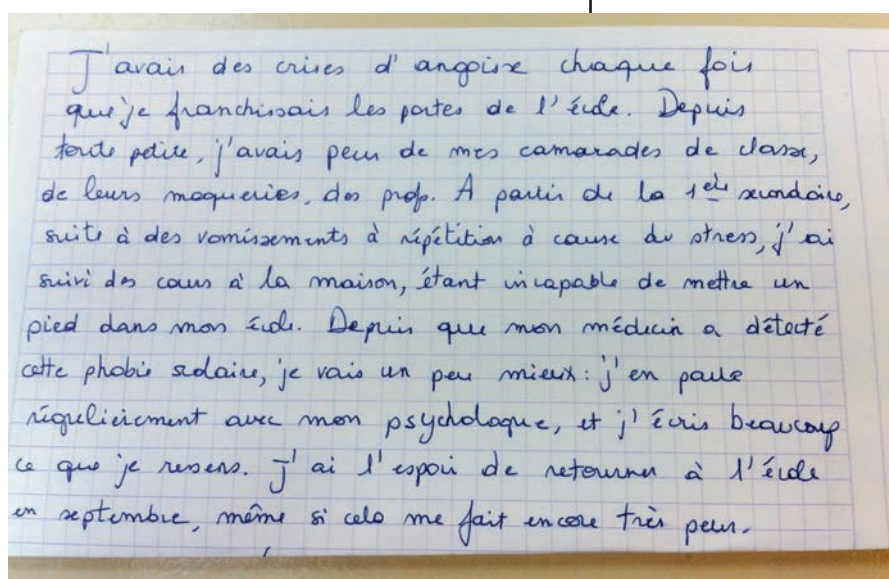 J'avais des crises d'angoisse chaque fois
que je franchissais les portes de l'école. Depuis
toute petite, j'avais peur de mes camarades de classe,
de leurs moqueries, des prof. A partir de la 1ère secondaire,
suite à des vomissements à répétition à cause du stress, j'ai
suivi des cours à la maison, étant incapable de mettre un
pied dans mon école. Depuis que mon médecin a détecté
cette phobie scolaire, je vais un peu mieux : j'en parle
régulièrement avec mon psychologue, et j'écris beaucoup
ce que je ressens. J'ai l'espoir de retourner à l'école
en septembre, même si cela me fait encore très peur.